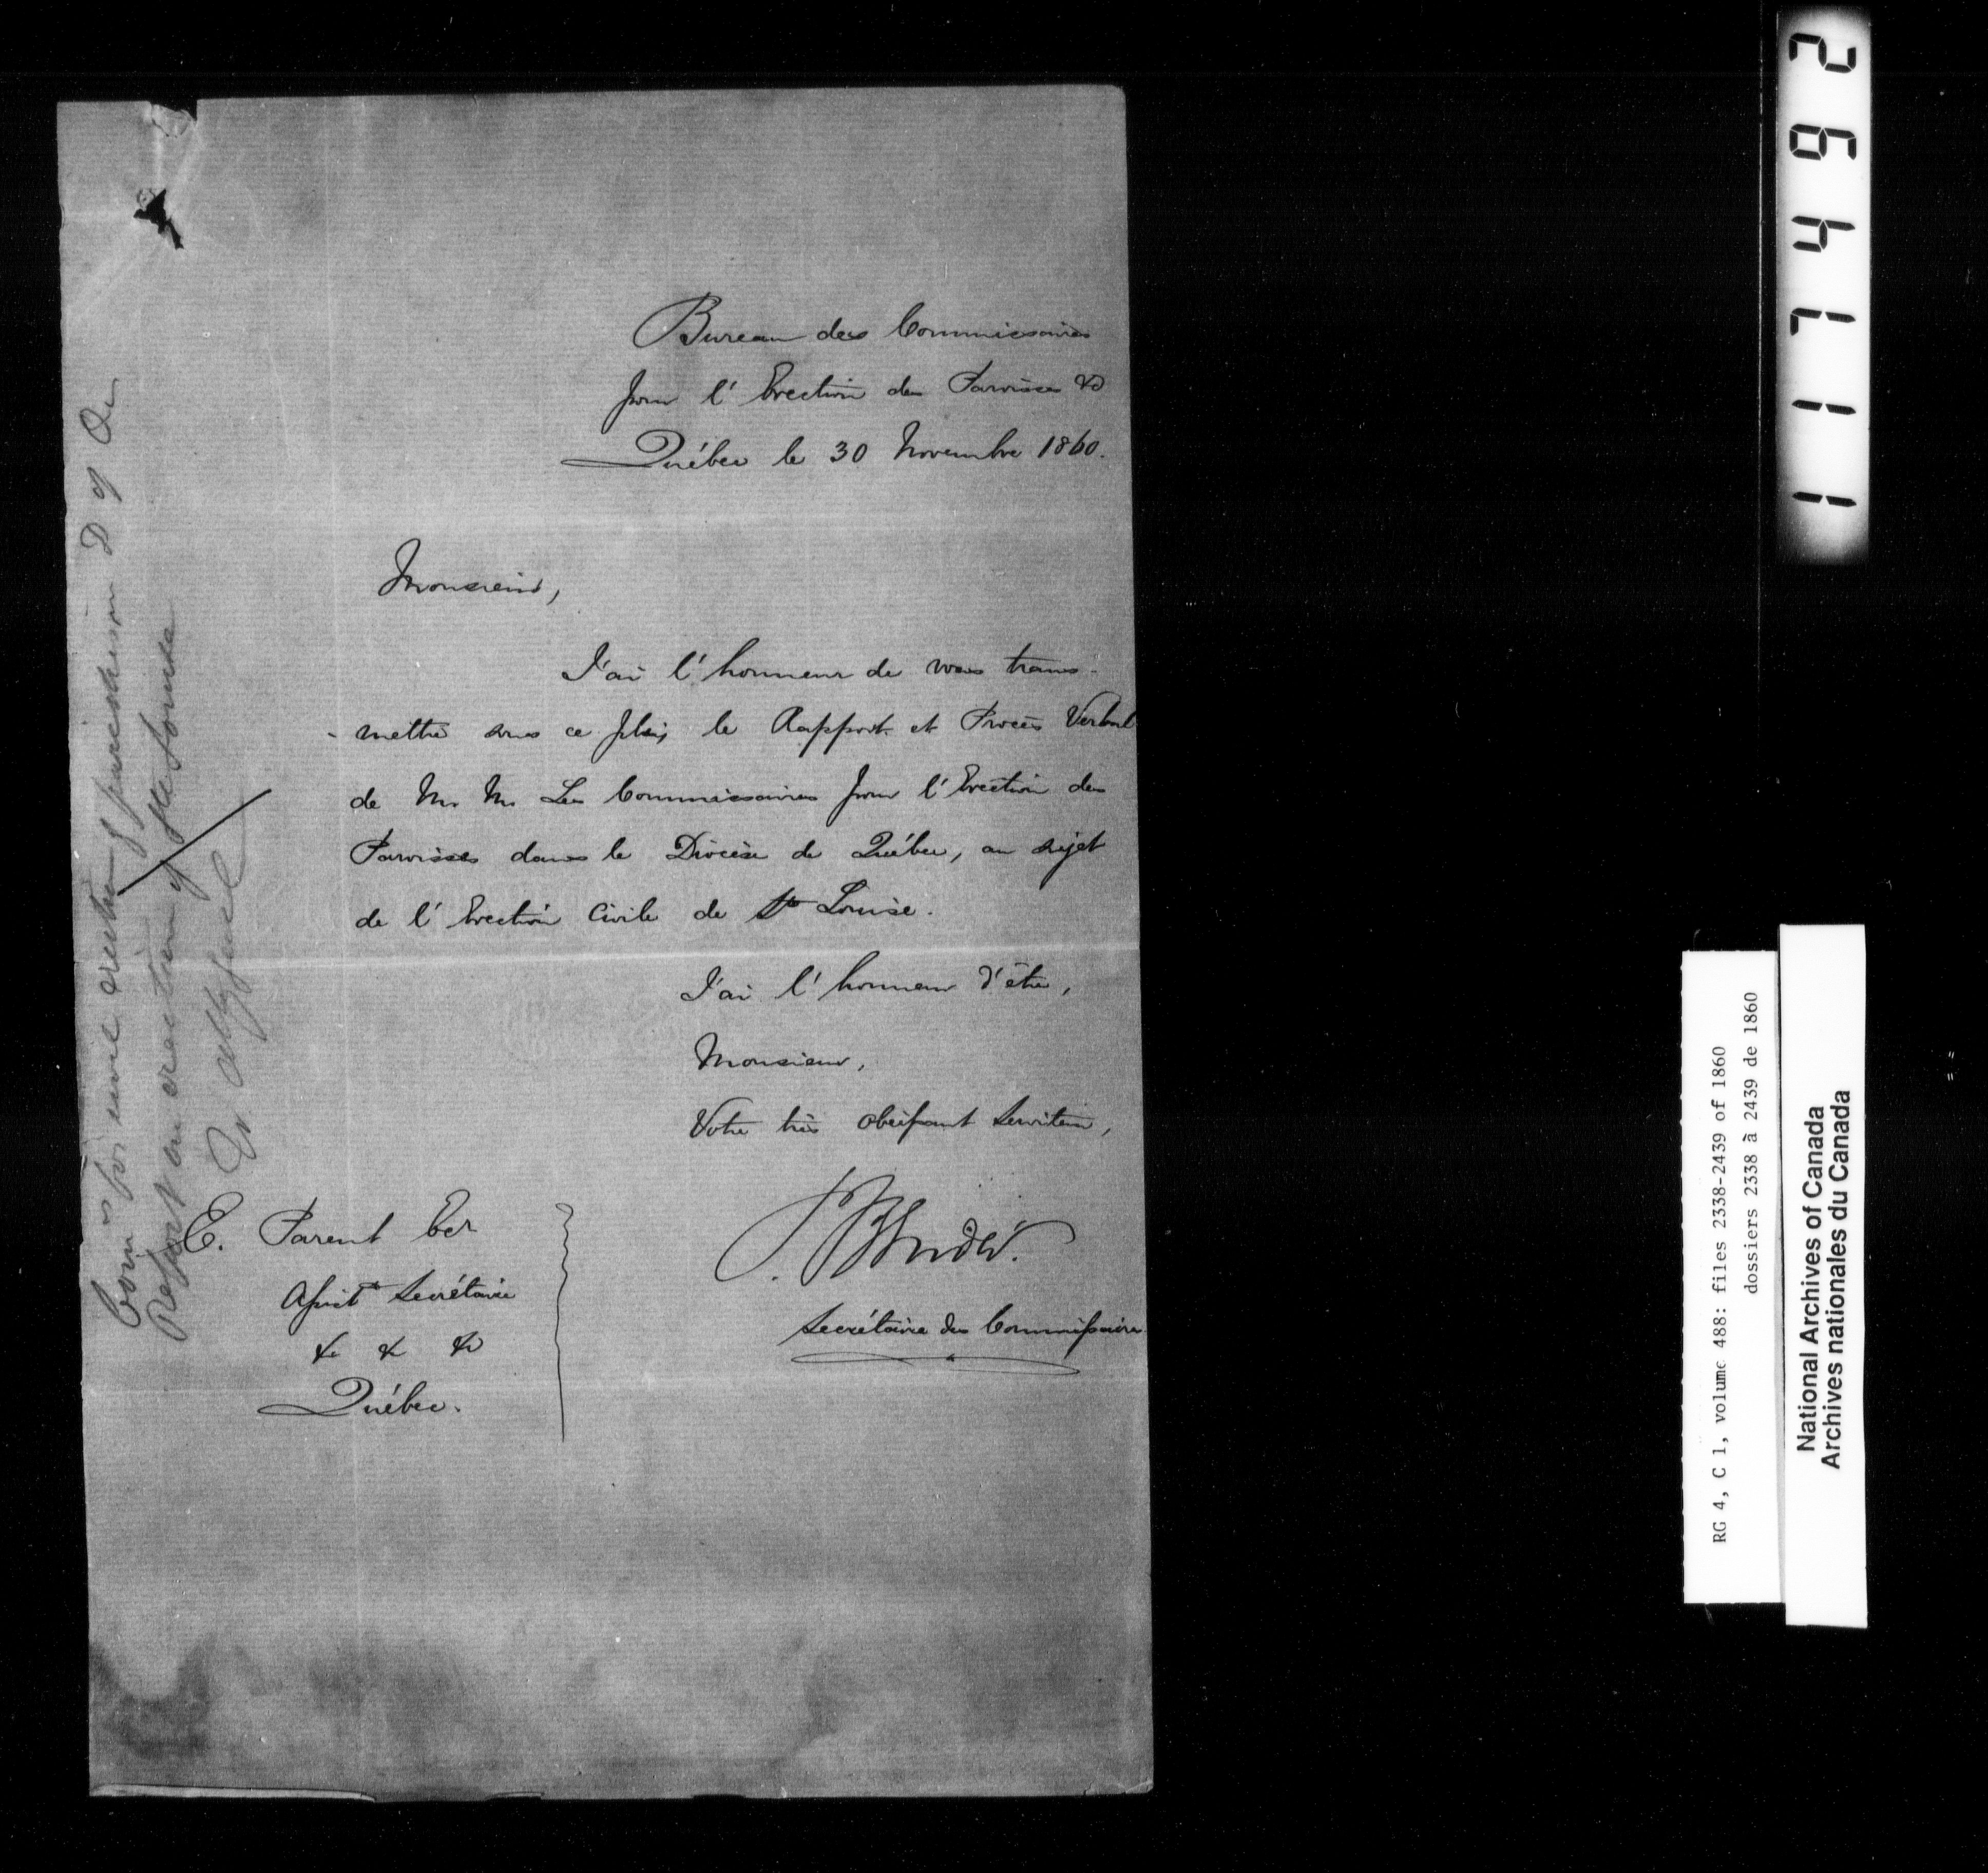 Bureau des Commissaires
pour l'Erection des Paroisses &c
Québec le 30 Novembre 1860.
Monsieur,
J'ai l'honneur de vous trans-
-mettre sous ce pli, le Rapport et Procès Verbal
de M. M. Les Commissaires pour l'Erection des
Paroisses dans le Diocèse de Québec, au sujet
de l'Erection Civile de Ste Louise.
J'ai l'honneur d'être,
Monsieur,
Votre très obéissant Serviteur,
Secrétaire des Commissaires
E. Parent Ecr
Assist Secrétaire
&c &c &c
Québec.
Com.rs for civil erection of parishes in D of Qu
Report on erection of Ste Louise
To atty genl
2 9 4 7 1 1
RG 4, C 1, volume 488: files 2338-2439 of 1860
dossiers 2338 à 2439 de 1860
National Archives of Canada
Archives nationales du Canada